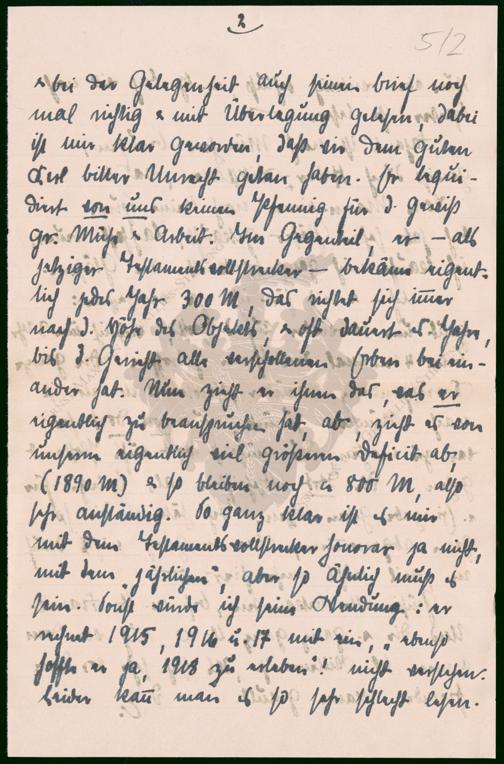 2
5/2
& bei der Gelegenheit auch seinen brief noch
mal richtig & mit Überlegung gelesen, dabei
ist mir klar geworden, daß wir dem guten
Kerl bitter Unrecht getan haben. Er liqui-
diert von uns keinen Pfennig für d. gewiß
gr. Mühe & Arbeit. Im Gegenteil, er – als
jetziger Testamentsvollstrecker – bekäme eigent-
lich jedes Jahr 300 M, das richtet sich immer
nach d. Höhe des Objekts, & oft dauert es Jahre,
bis d. Gericht alle verschollenen Erben bei ein-
ander hat. Nun zieht er ihnen das, was er
eigentlich zu beanspruchen hat, ab, zieht es von
unserm eigentlich viel größeren Deficit ab,
(1890 M) & so bleiben noch 800 M, also
sehr anständig. So ganz klar ist es mir
mit dem Testamentsvollstrecker honorar ja nicht,
mit dem „jährlichen", aber so ähnlich muß es
sein. Sonst würde ich seine Wendung: er
rechnet 1915, 1916 u. 17 mit ein, „ebenso
hoffte er ja, 1918 zu erleben"! nicht verstehen.
Leider kann man es so sehr schlecht lesen.